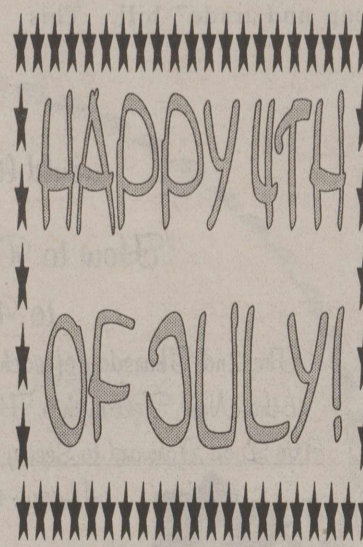 HAPPY 4TH
OF JULY!